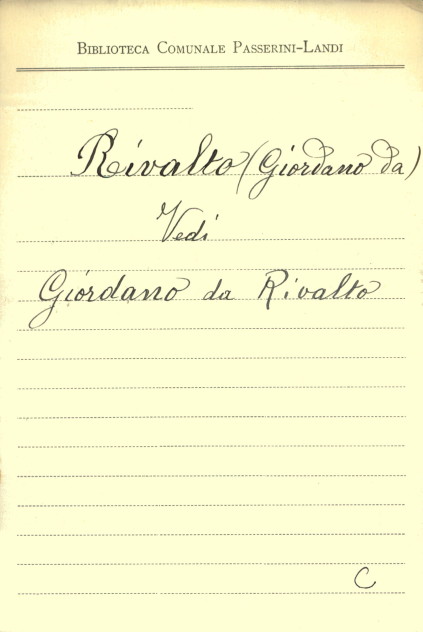 Biblioteca Comunale Passerini-Landi
Rivalto (Giordano da)
Vedi
Giordano da Rivalto
C